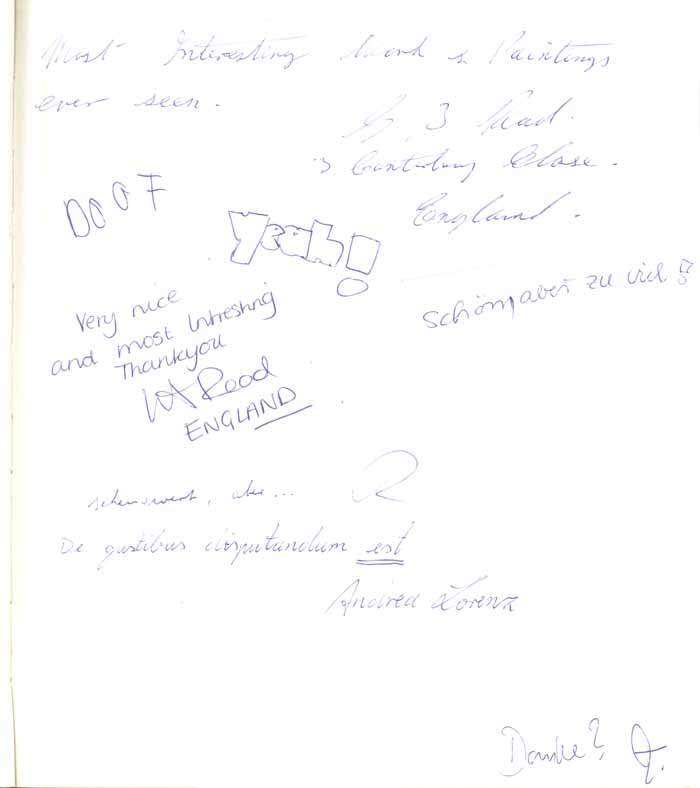 Most Interesting Work & Paintings
ever seen.
G. J Read.
3 Canterbury Close.
England.
DOOF
Yeah!
Schön, aber zu viel!
Very nice
and most Intresting
Thankyou
Read
ENGLAND
sehenswert, aber...
De gustibus disputandum est
Andrea Lorenz
Danke?